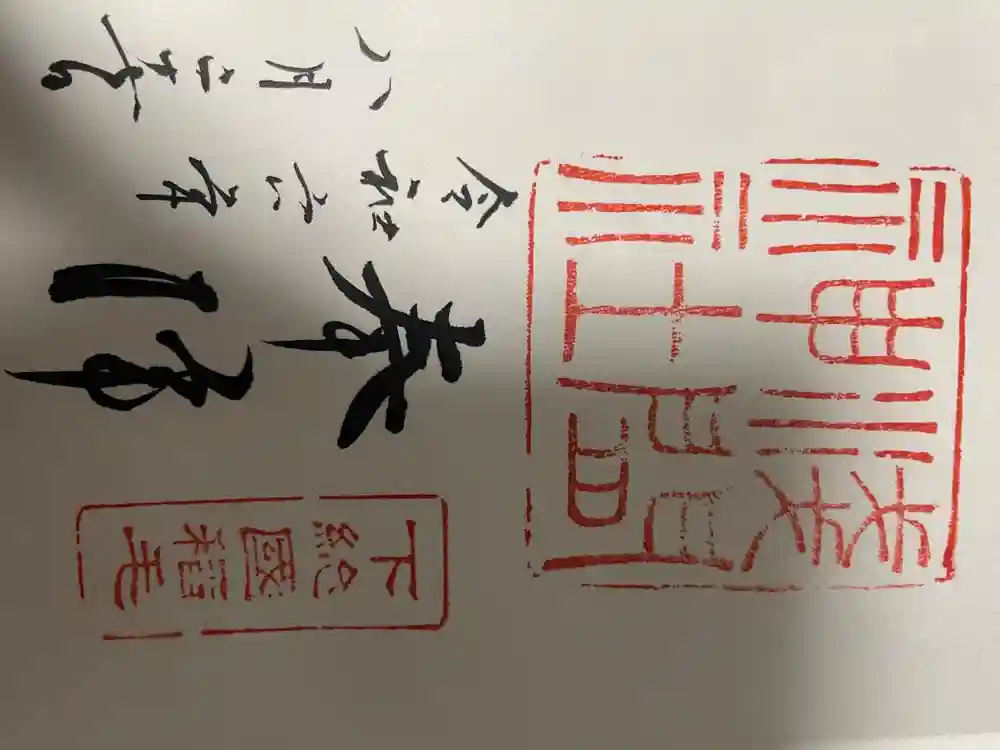 淺間
神社
下総國稲毛
奉拝
令和六年
八月二十日